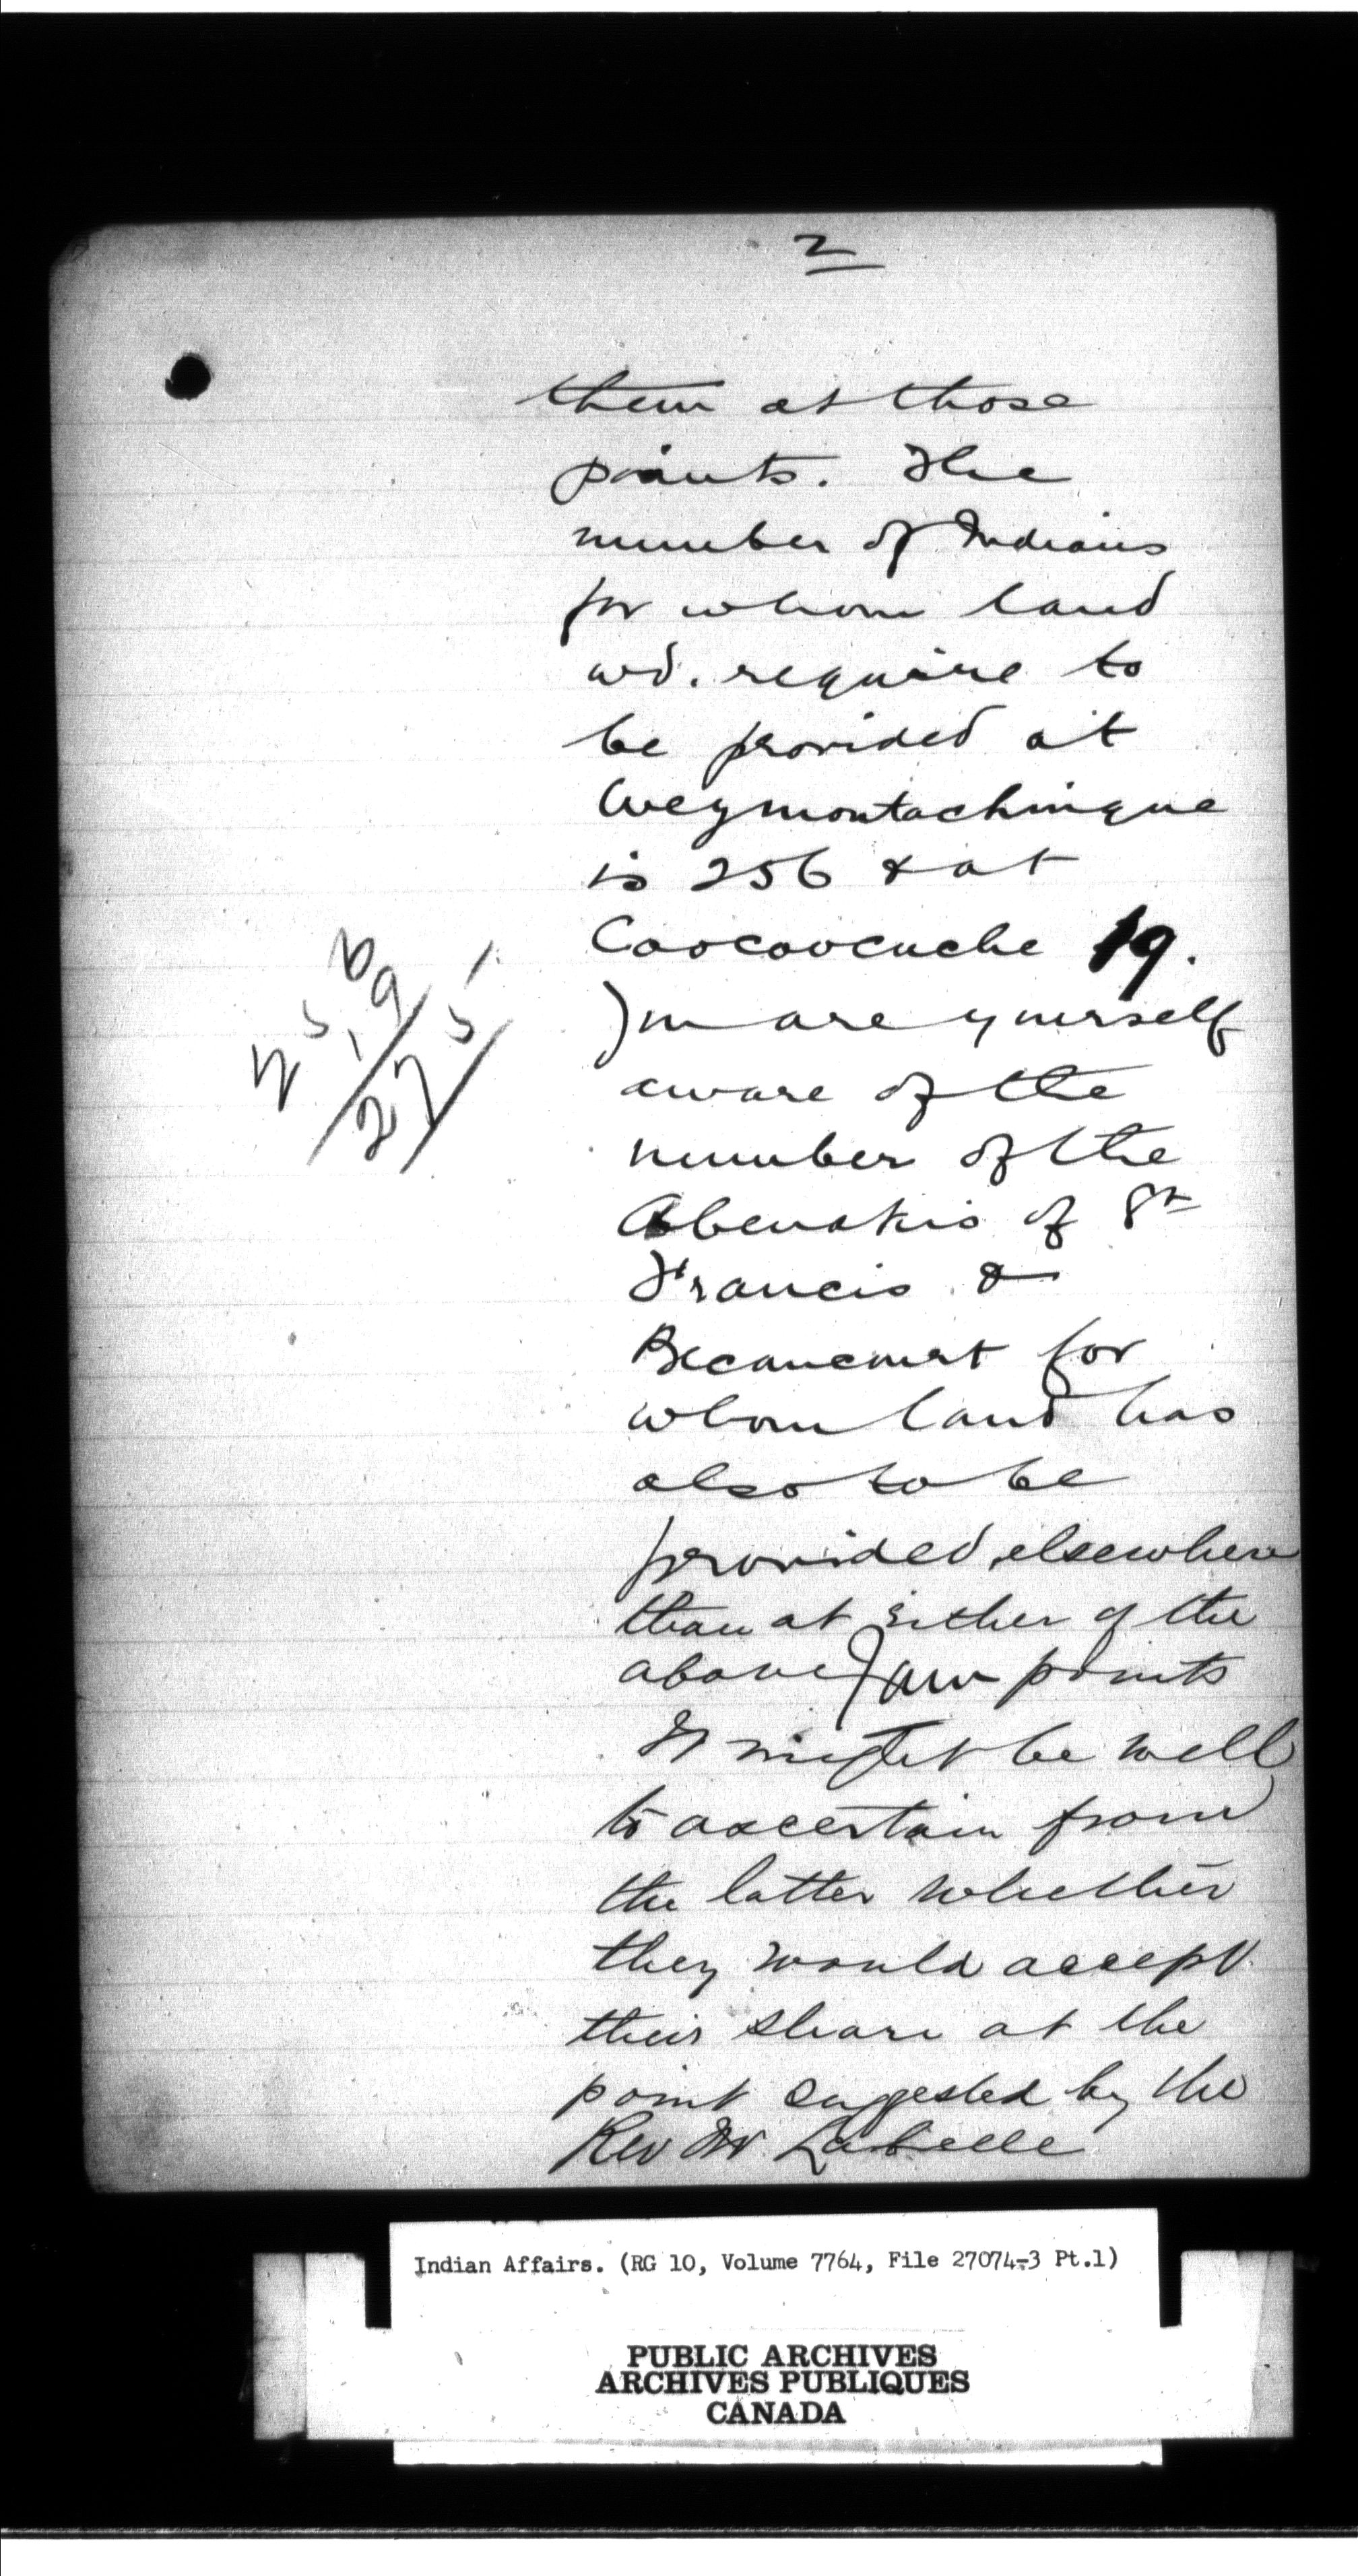 2
them at those
points. The
number of Indians
for whom land
wd. require to
be provided at
Weymontachingue
is 256 & at
Coocoocache 19.
You are yourself
aware of the
number of the
Abenakis of St
Francis &
Becancourt for
whom land has
also to be
provided, elsewhere
than at either of the
above points
It might be well
to ascertain from
the latter whether
they would accept
their share at the
point suggested by the
Rev Mr Labelle
256
19
275
Indian Affairs. (RG 10, Volume 7764, File 27074-3 Pt.1)
PUBLIC ARCHIVES
ARCHIVES PUBLIQUES
CANADA